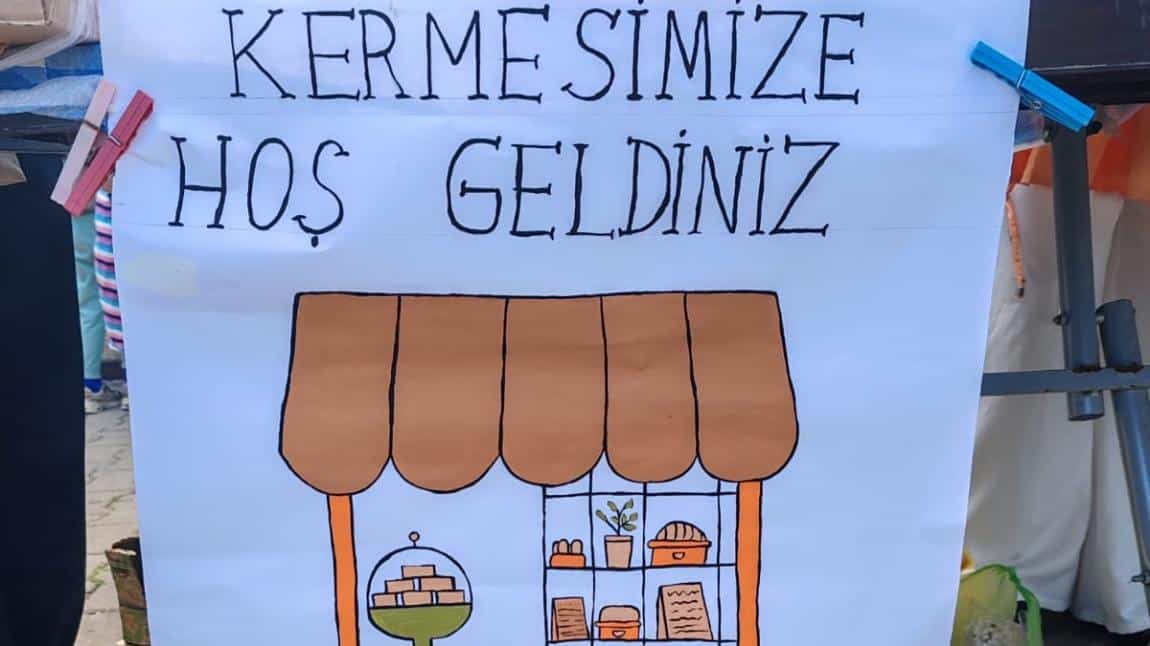 KERMESİMİZE
HOŞ GELDİNİZ